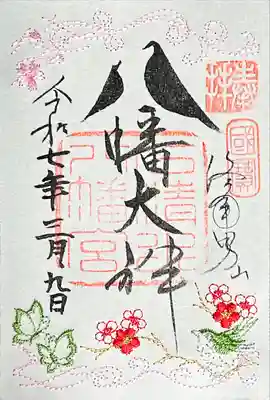 奉拝
國寶
男山
八幡大神
石清水
八幡宮
令和七年三月九日